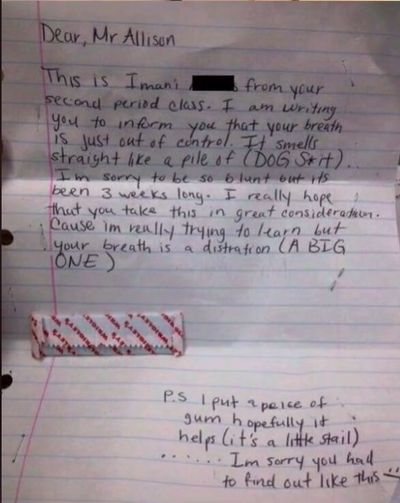 Dear, Mr Allison
This is Imani from your
second period class. I am writing
you to inform you that your breath
is just out of control. It smells
straight like a pile of (DOG S*it).
I'm sorry to be so blunt but its
been 3 weeks long. I really hope
that you take this in great consideration.
Cause im really trying to learn but
your breath is a distration (A BIG
ONE)
P.S I put a peice of
gum hopefully it
helps (it's a little stail)
...... I'm sorry you had
to find out like this